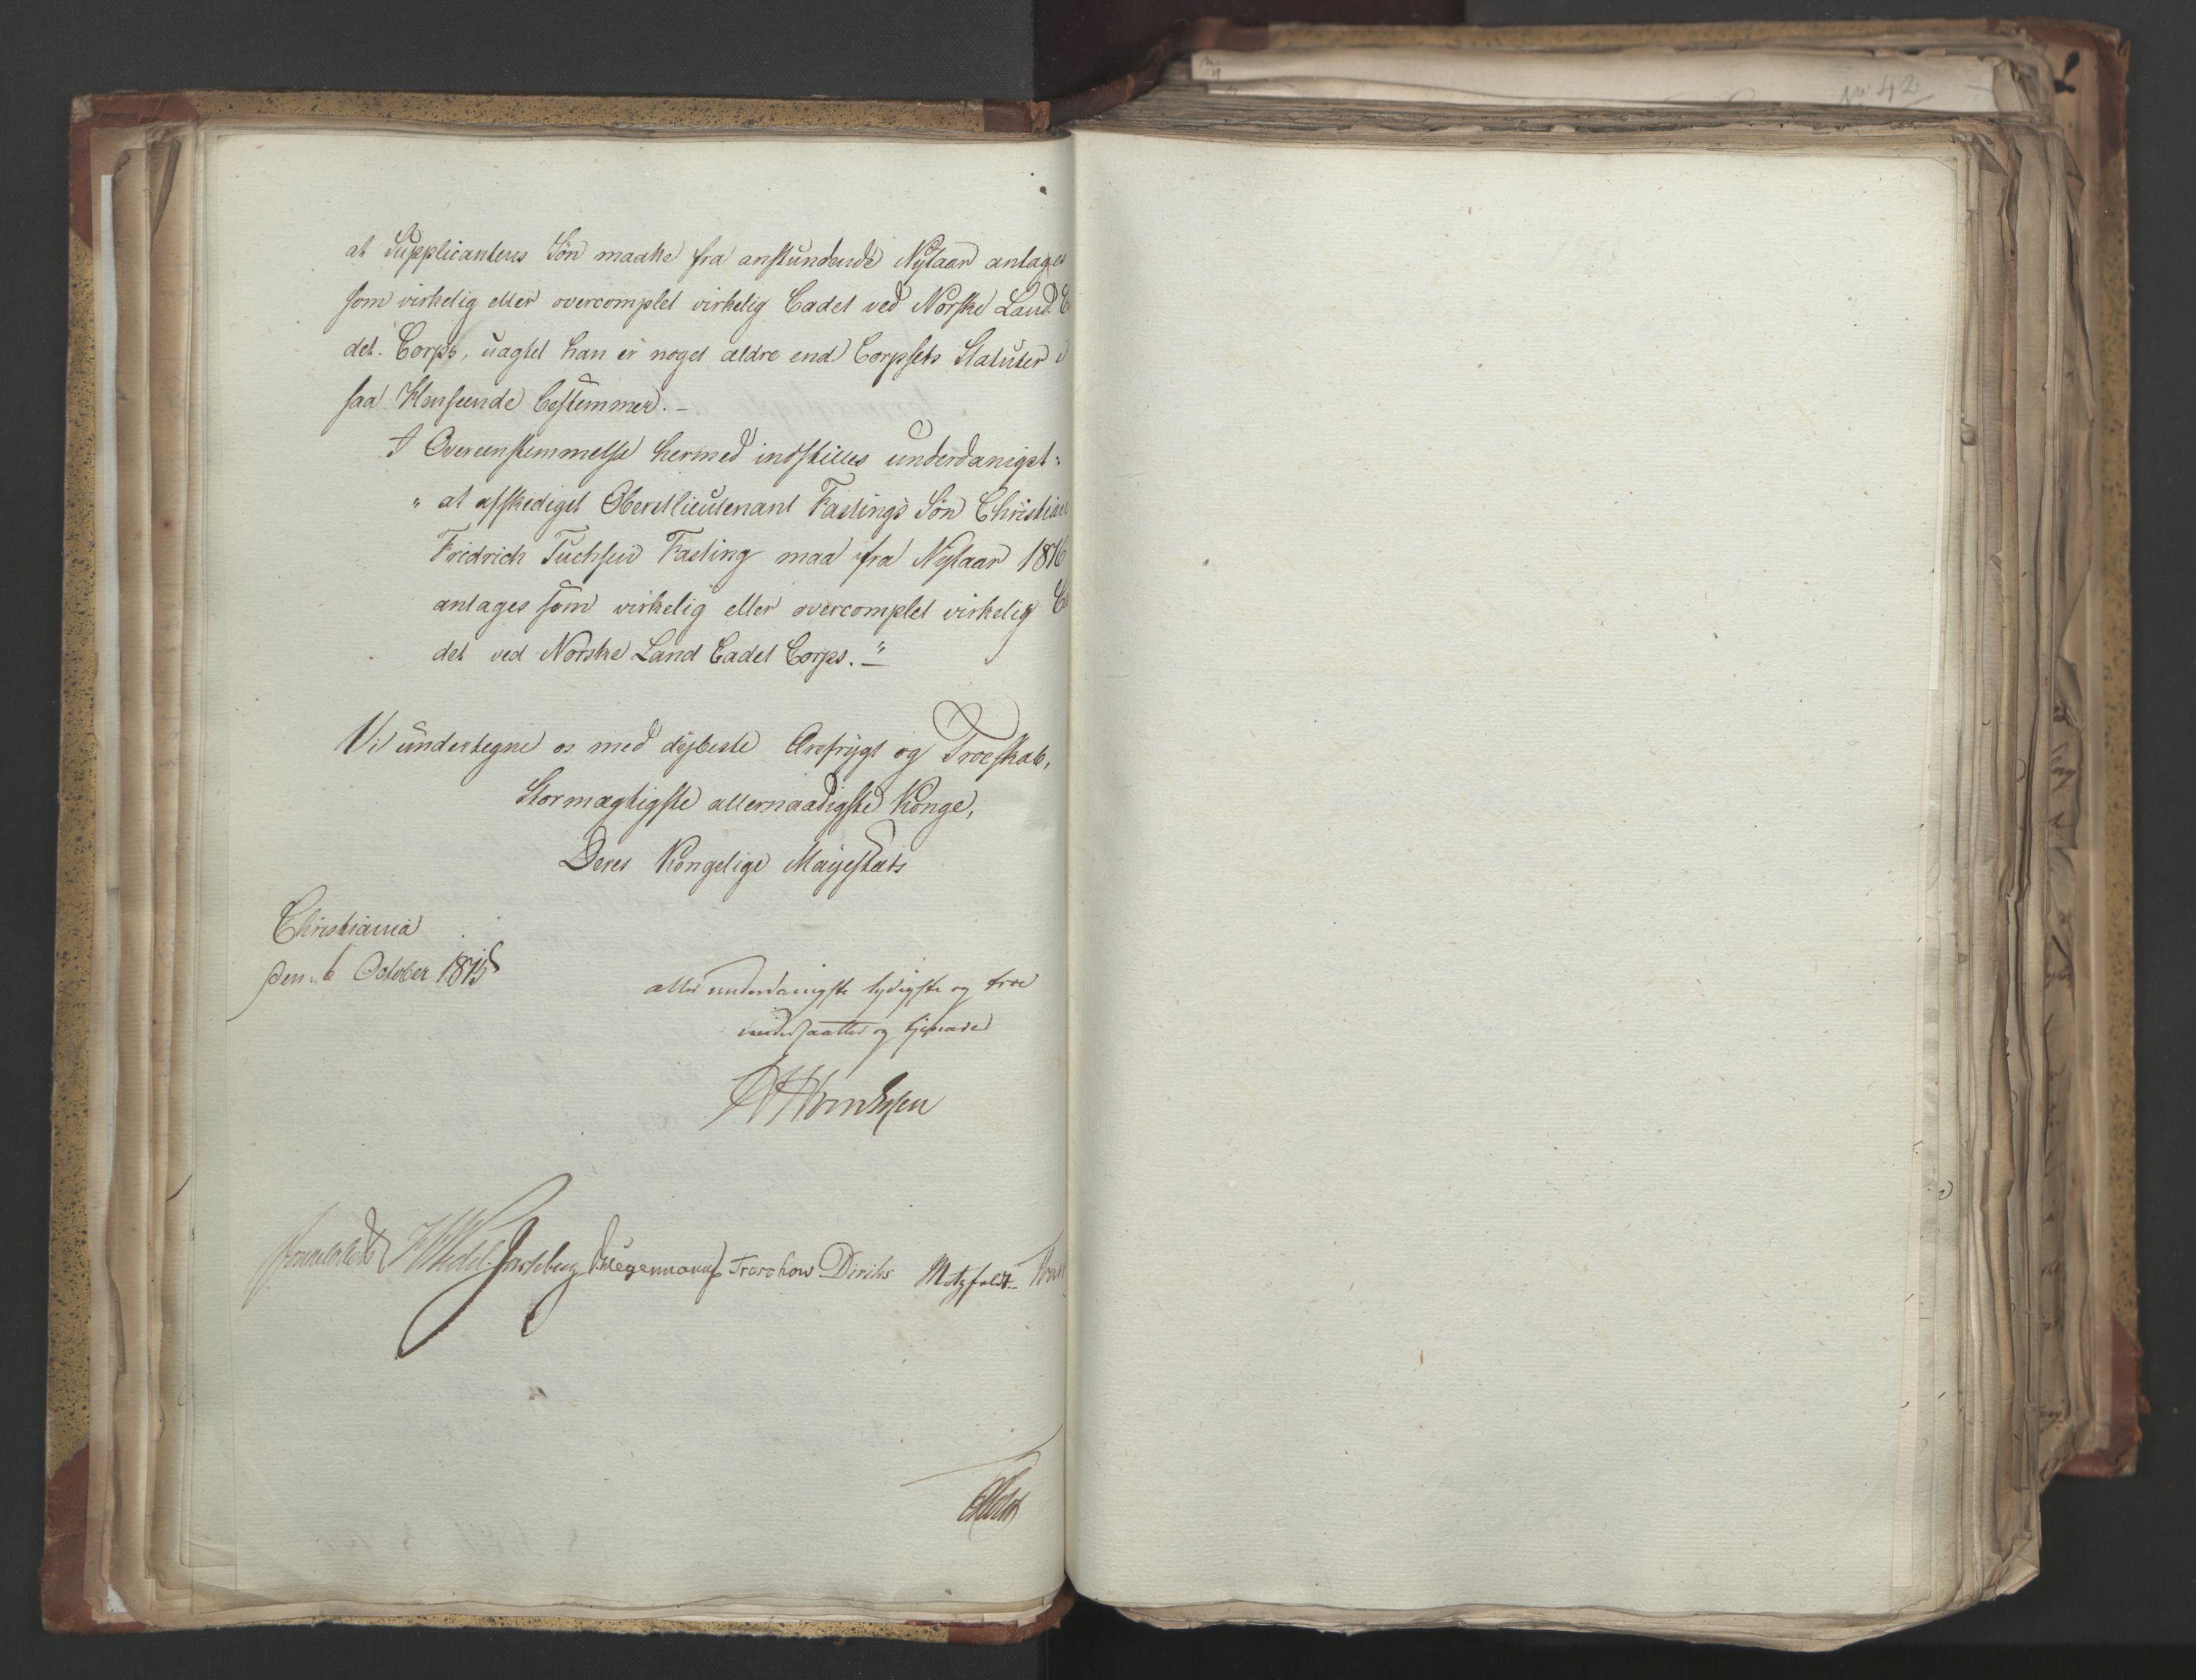 at Supplicantens Søn maatte fra anstundende Nytaar antages
som virkelig eller overcomplet virkelig Cadet ved Norske Land C
det. Corps, uagtet han er noget ældre end Corpsets Statuter i
saa Henseende bestemmer. –
I Overeensstemmelse hermed indstilles underdanigst:
" at afskediget Oberstlieutenant Fastings Søn Christian
Fridrich Tuchsen Fasting maa fra Nytaar 1816
antages som virkelig eller overcomplet virkelig C
det ved Norske Land Cadet Corps. "
Vi undertegne os med dybeste Ærefrygt og Troeskab,
Stormægtigste allernaadigste Konge,
Deres Kongelige Majestæts
Christiania
den 6 October 1815
allerunderdanigste lydigste og troe
undersaatter og tjenere
Wedel Jarlsberg Treschow Diriks Motzfeldt
No 42